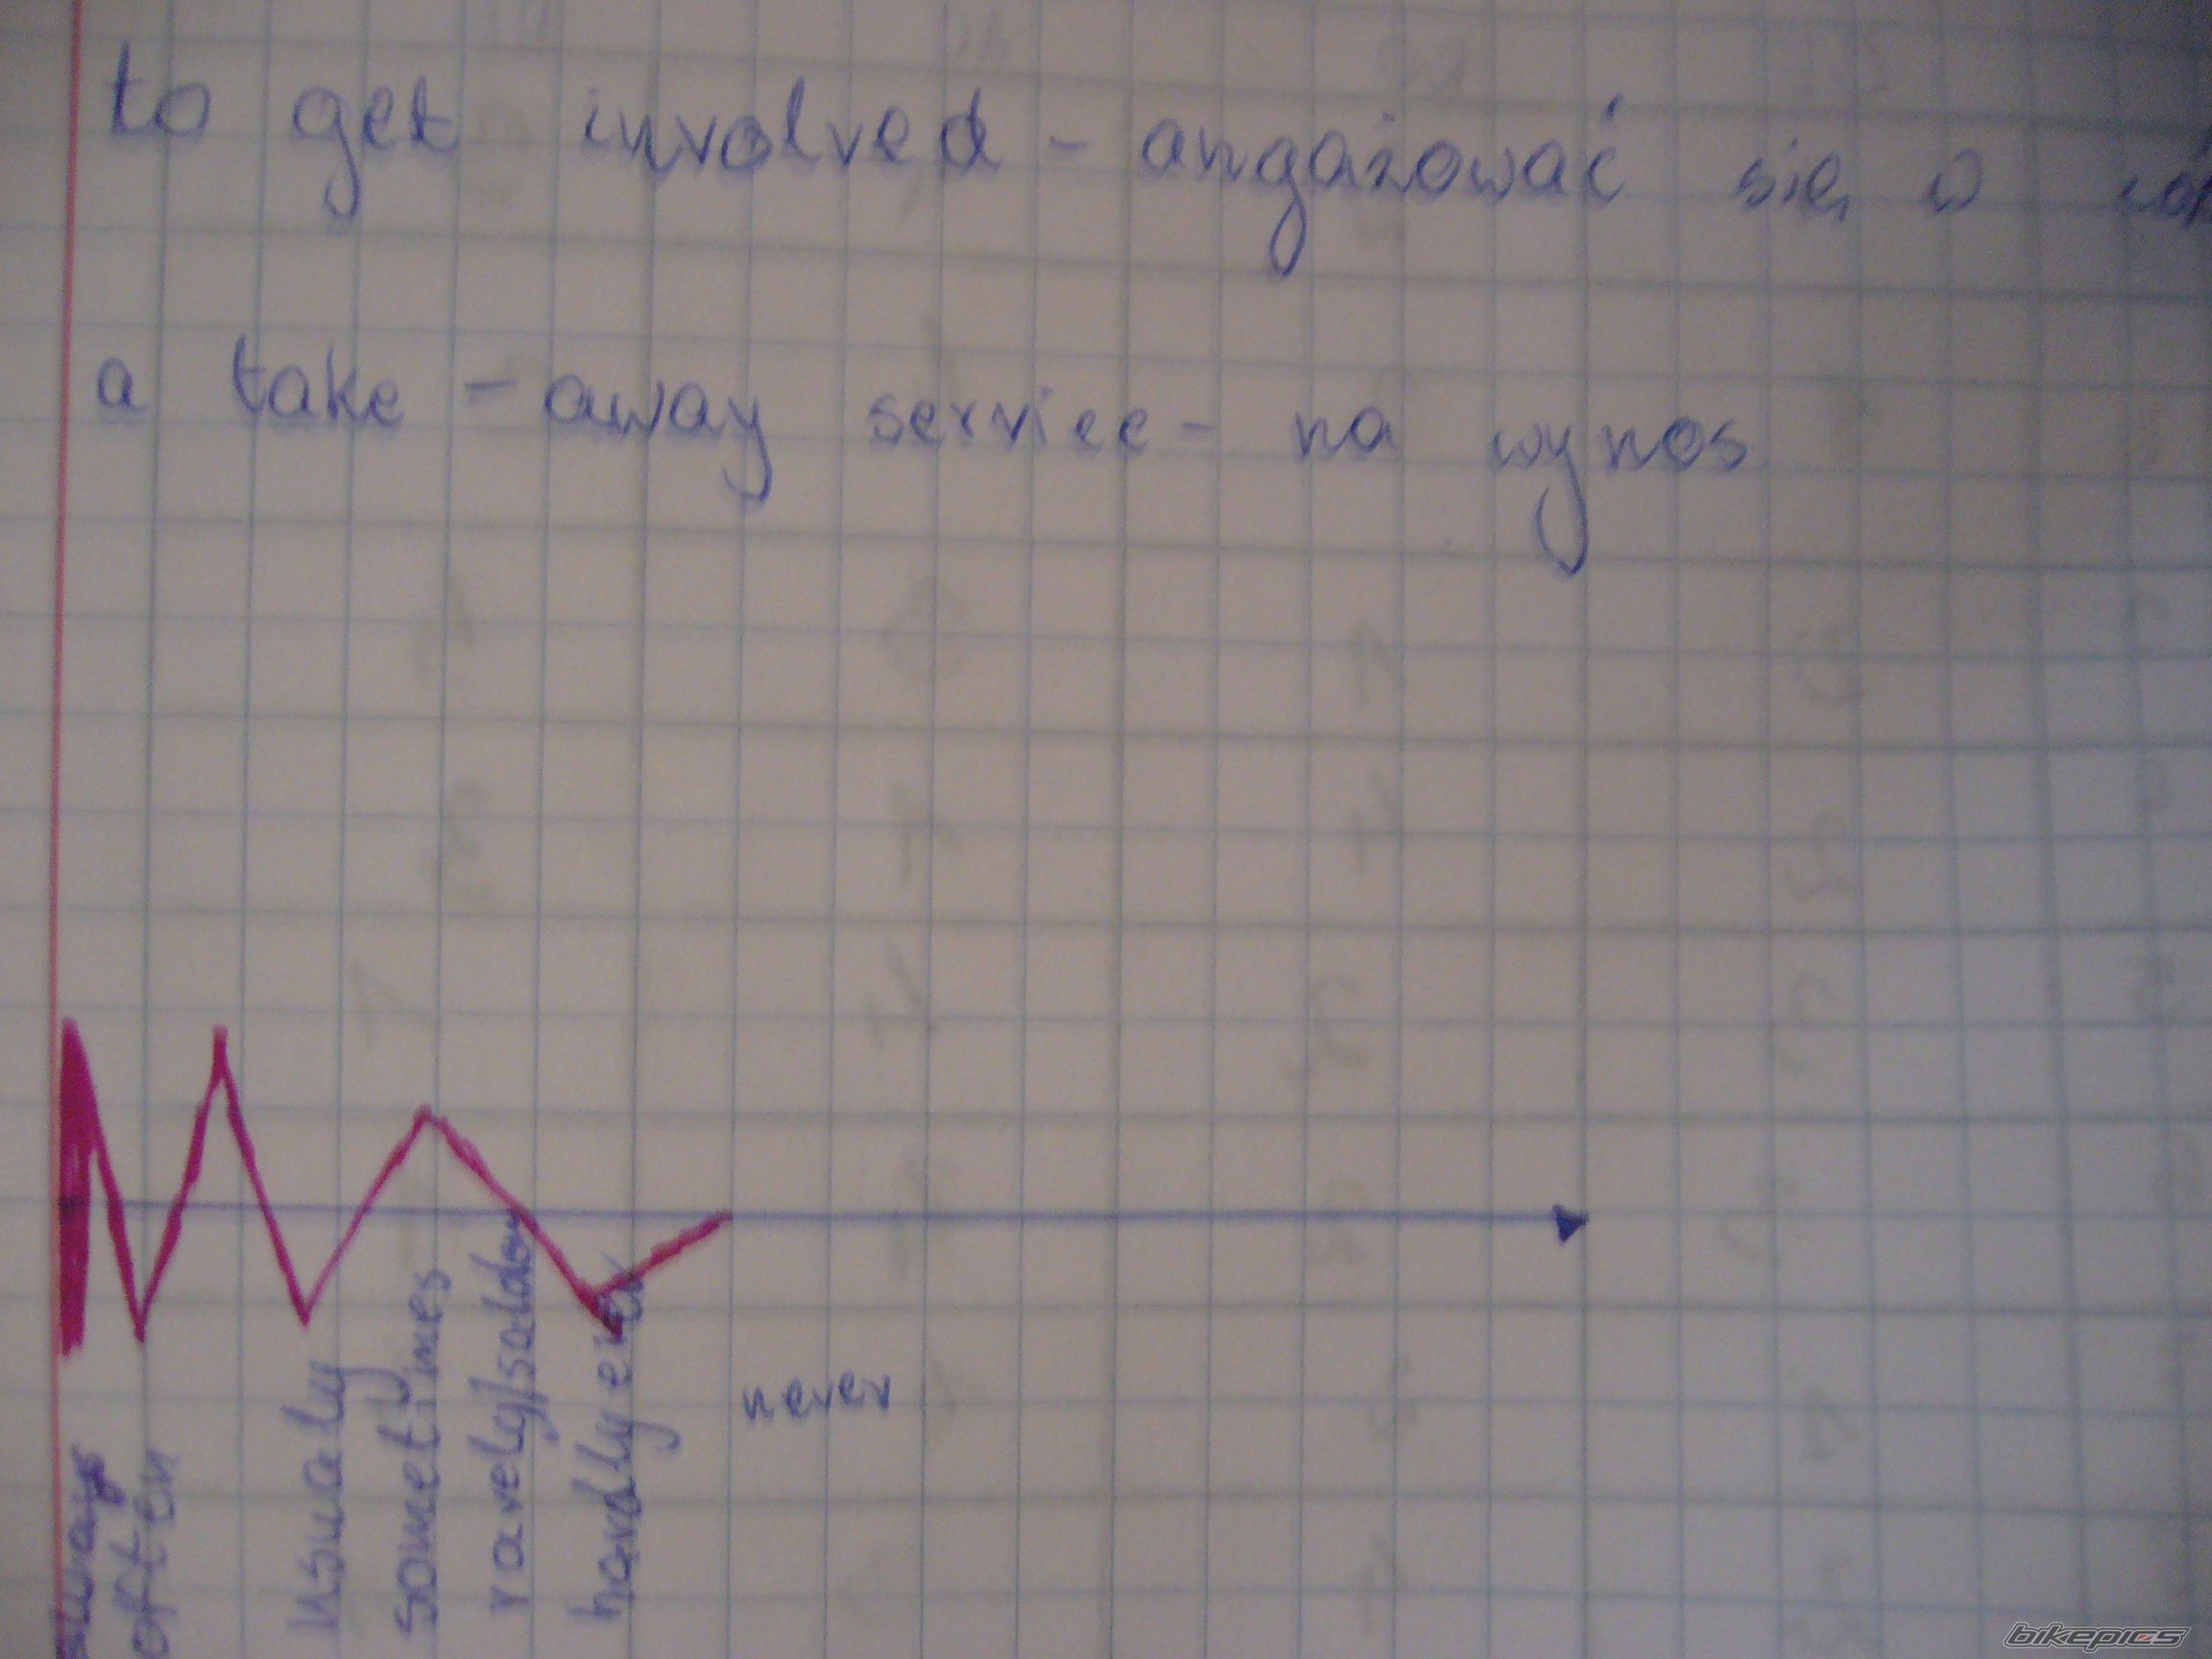 to get involved - angażować się w
a take - away service - na wynos
always
often
usualy
sometimes
rarely/seldom
hardly ever
never
bikepics